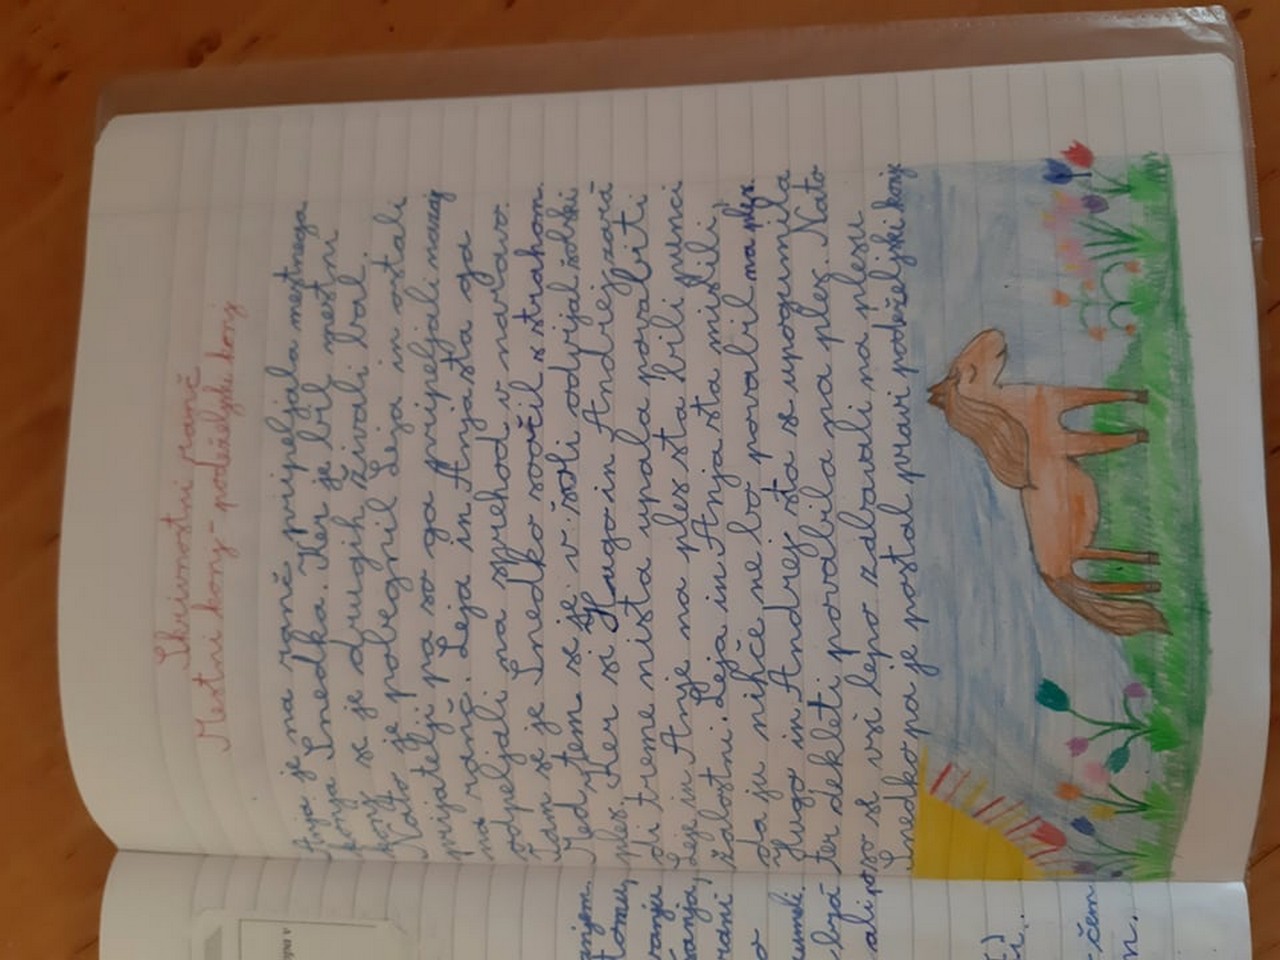 Skrivnostni ranč
Mestni konj - podeželjski konj
Anja je na ranč pripeljala mestnega
konja Snedka. Ker je bil mestni
konj se je drugih živali bal.
Nato je pobegnil. Leja in ostali
prijatelji pa so ga pripeljali nazaj
na ranč. Leja in Anja sta ga
odpeljali na sprehod v naravo.
Tam se je Snedko soočil s strahom.
Med tem se je v šoli odvijal šolski
ples. Ker si Hugo in Andrej zara
di treme nista upala povabiti
Leje in Anje na ples sta bili punci
žalostni. Leja in Anja sta mislili,
da ju nihče ne bo povabil na ples.
Hugo in Andrej sta s upogumila
ter dekleti povabila na ples. Nato
so si vsi lepo zdravali na plesu
Snedko pa je postal pravi podeželjski konj